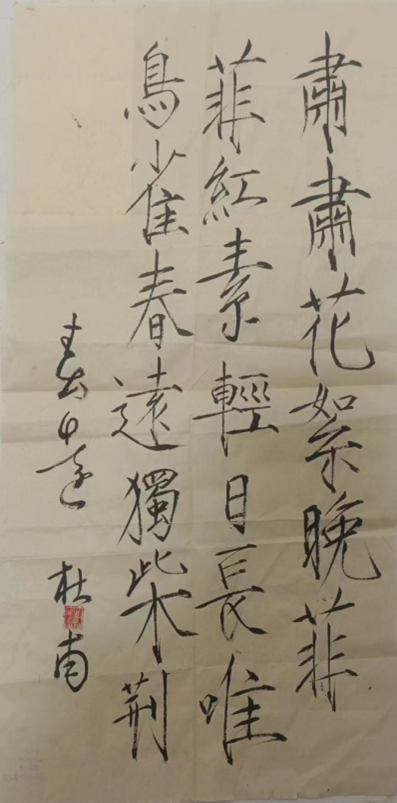 肅肅花絮晚菲
菲紅素輕日長唯
鳥雀春遠獨柴荆
杜